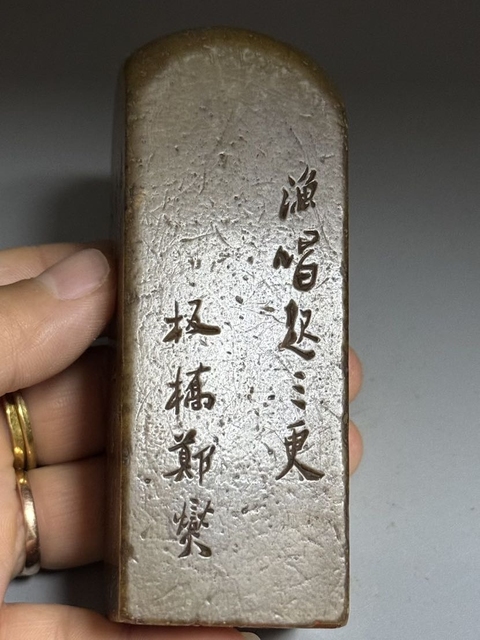 渔唱起三更
板橋鄭燮